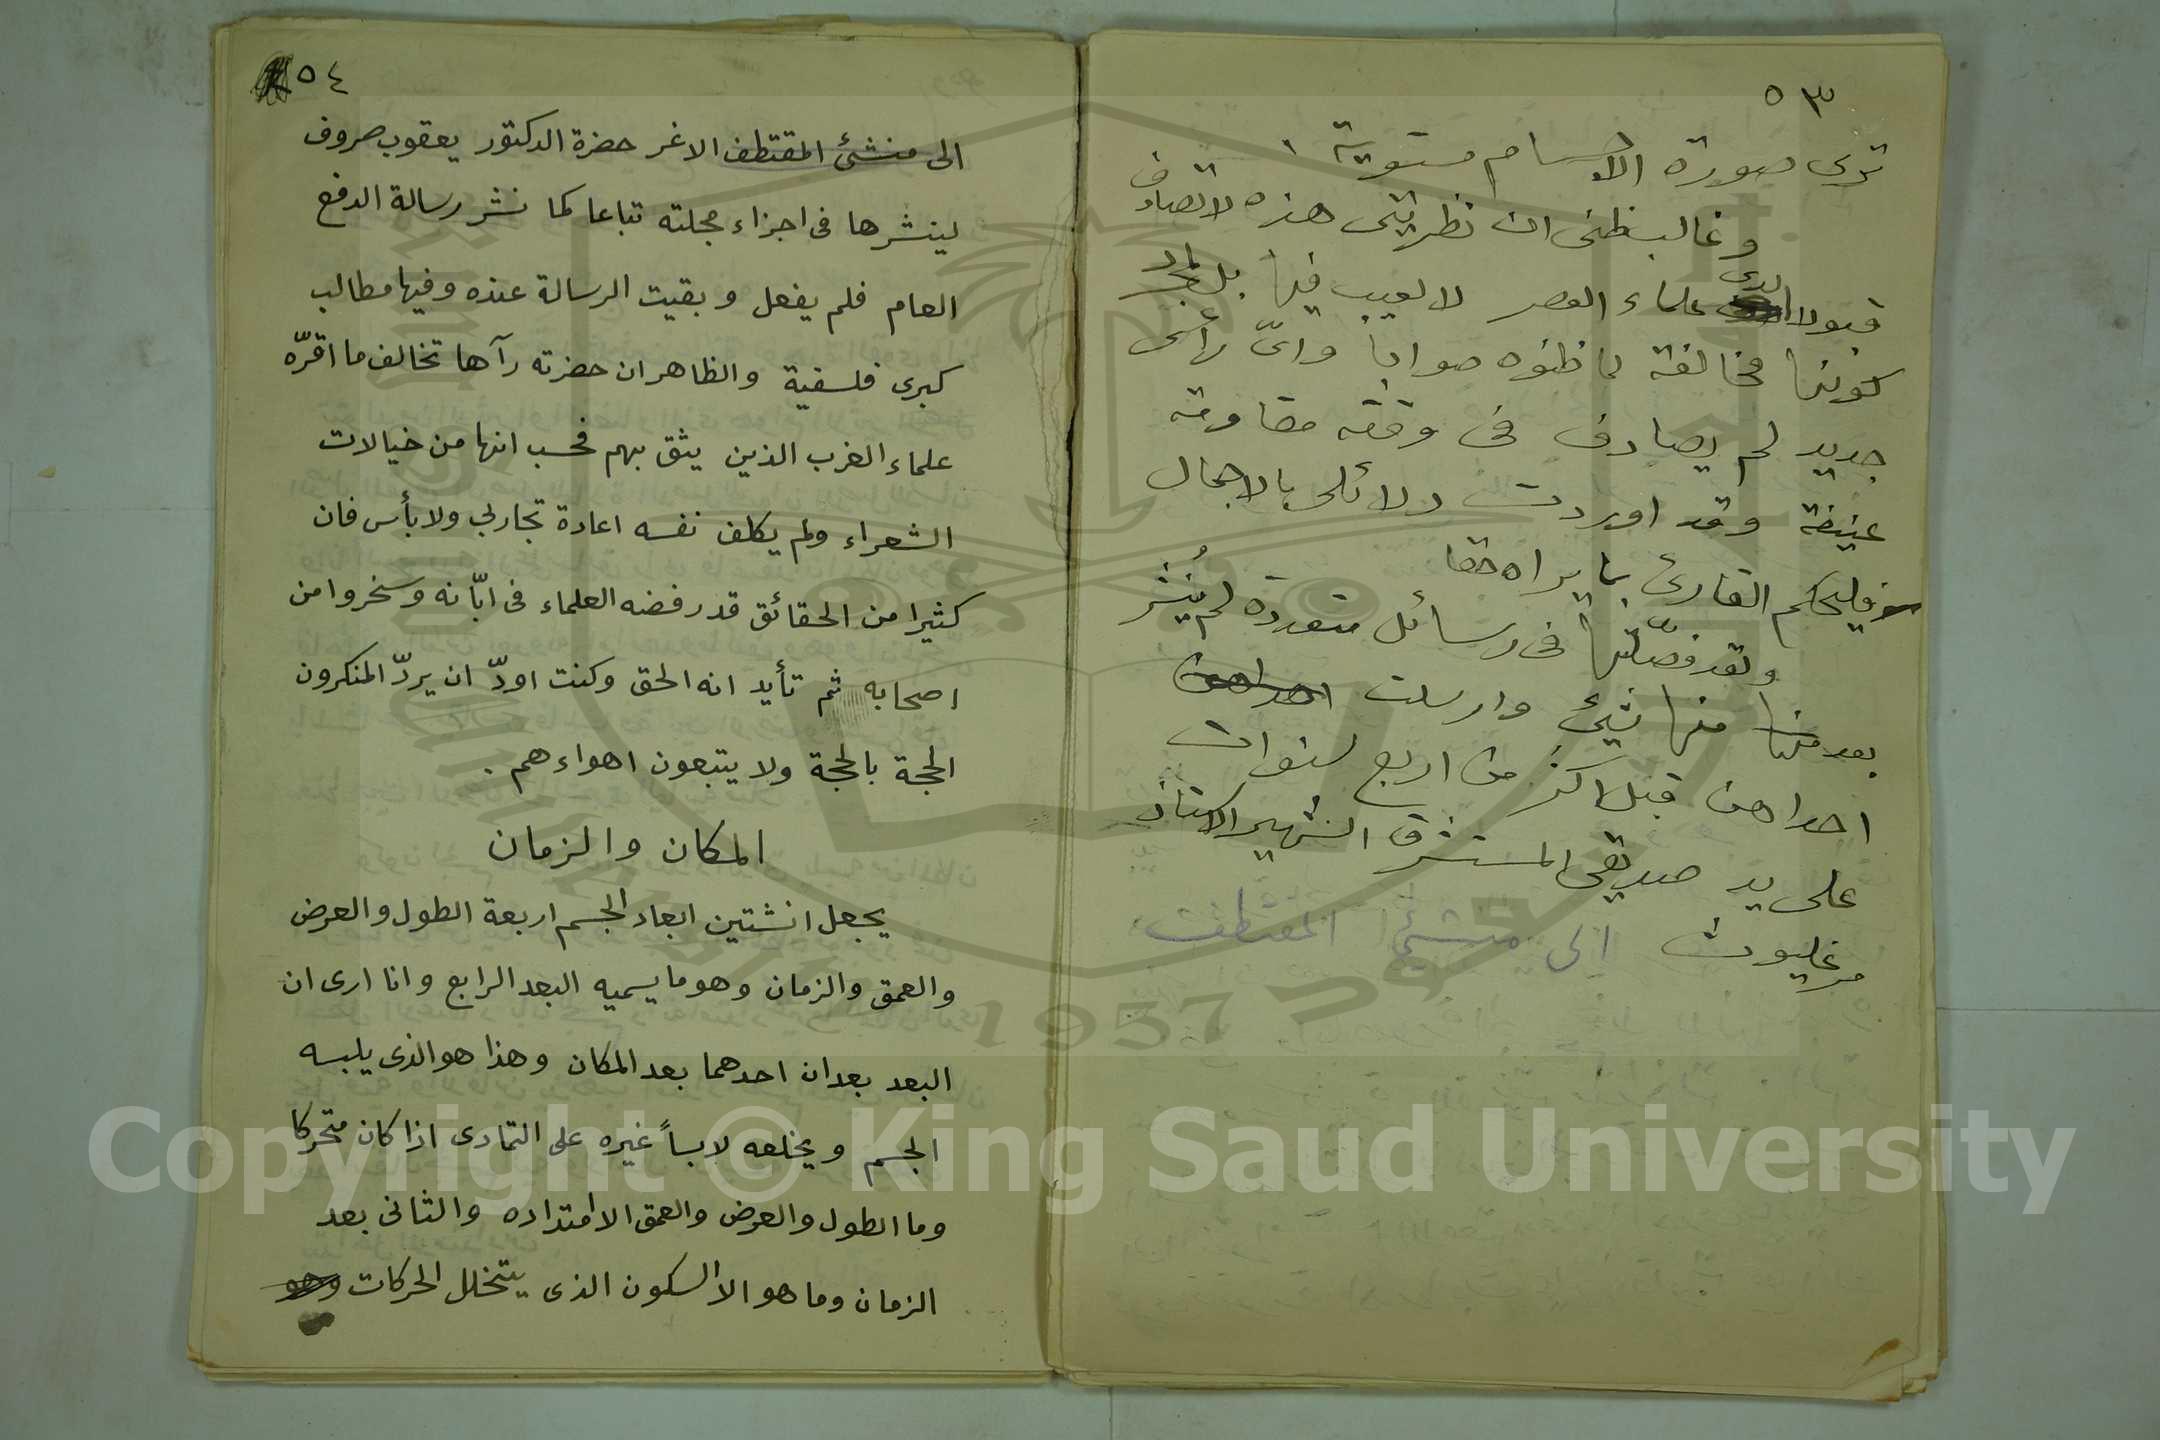 ٥٣
ترى صورة الاجسام مستوية .
وغالب ظنى ان نظريتى هذه لا تصادف
قبولا لدى علماء العصر لا لعيب فيها بل لمجرد
كونها مخالفة لما ظنوه صوابا واىّ رأى
جديد لم يصادف فى وقته مقاومة
عنيفة وقد اوردت دلائلى بالاجمال
فليحكم القارئ بما يراه حقا
ولقد فصّلتها فى رسائل متعددة لم يُنشر
بعد منها شيئ وارسلت
احداهن قبل اكثر من اربع سنوات
على يد صديقى المستشرق الشهير الاستاذ
مرغليوث إلى منشئ المقتطف
٥٤
الى منشئ المقتطف الاغر حضرة الدكتور يعقوب صروف
لينشرها فى اجزاء مجلته تباعا كما نشر رسالة الدفع
العام فلم يفعل وبقيت الرسالة عنده وفيها مطالب
كبرى فلسفية والظاهر ان حضرته رآها تخالف ما اقرّه
علماء الغرب الذين يثق بهم فحسب انها من خيالات
الشعراء ولم يكلف نفسه اعادة تجاربى ولا بأس فان
كثيرا من الحقائق قد رفضه العلماء فى ابّانه وسخروا من
اصحابه ثم تأيد انه الحق وكنت اودّ ان يردّ المنكرون
الحجة بالحجة ولا يتبعون اهواءهم .
المكان والزمان
يجعل انشتين ابعاد الجسم اربعة الطول والعرض
والعمق والزمان وهو ما يسميه البعد الرابع وانا ارى ان
البعد بعدان احدهما بعد المكان وهذا هو الذى يلبسه
الجسم ويخلعه لابساً غيره على التمادى اذا كان متحركا
وما الطول والعرض والعمق الا امتداده والثانى بعد
الزمان وما هو الا السكون الذى يتخلل الحركات وهو
Copyright © King Saud University
1957